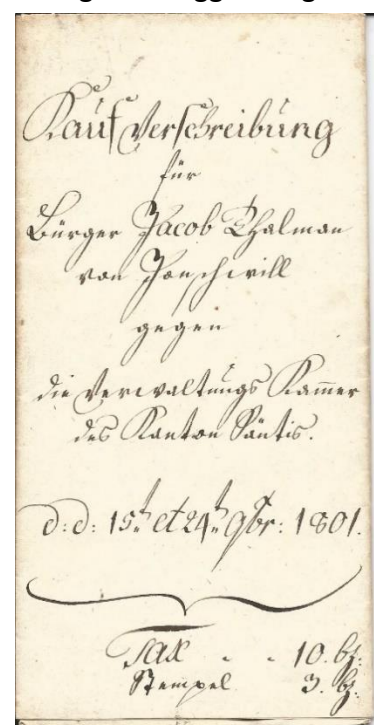 Kauf Verschreibung
für
Bürger Jacob Thalman
von Jonschwill
gegen
die Verwaltungs Kam̄er
des Kanton Säntis.
d: d: 15t et 24t 9br: 1801.
Tax - - 10. bz:
Stempel 3. bz: